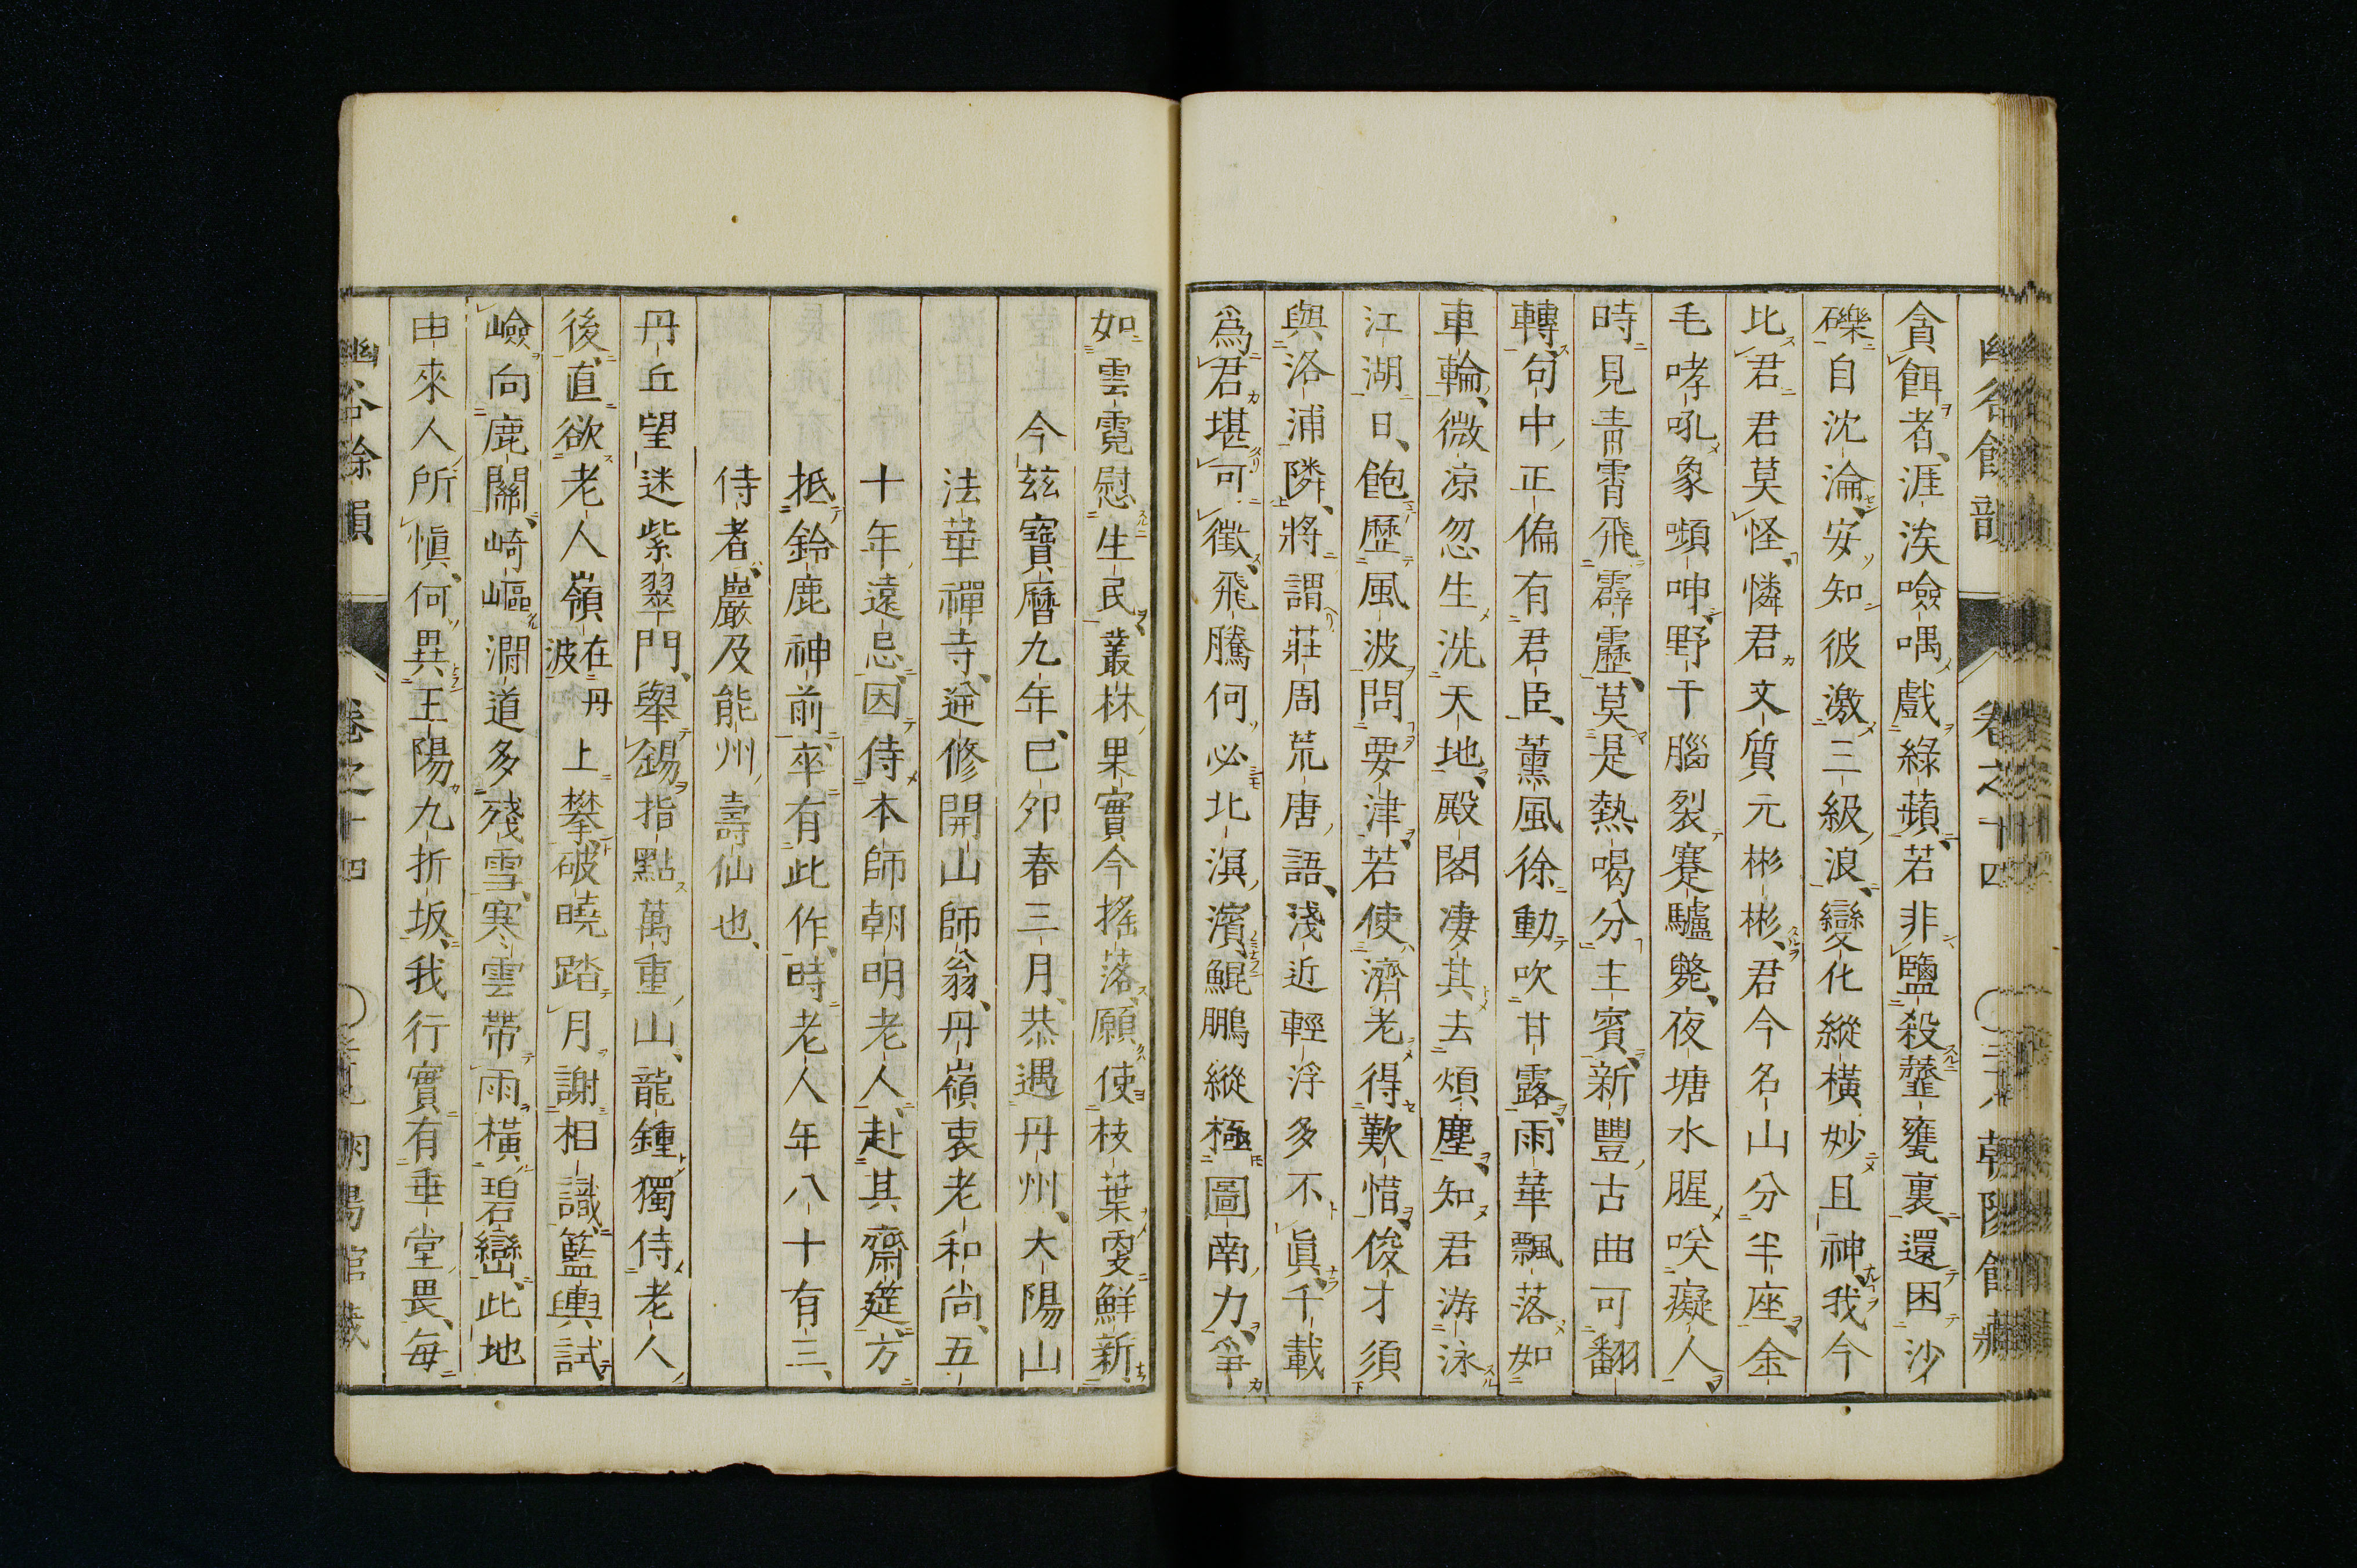 貪餌者涯涘噞喁戲綠蘋若非鹽殺虀甕裏還困沙
礫自沈淪安知彼激三級浪變化縱橫妙且神我今
比君君莫怪憐君文質元彬彬君今名山分半座金
毛哮吼象嚬呻野干腦裂蹇驢斃夜塘水腥咲癡人
時見青霄飛霹靂莫是熱喝分主賓新豐古曲可翻
轉句中正偏有君臣薰風徐動吹甘露雨華飄落如
車輪微涼忽生洗天地殿閣凄其去煩塵知君游泳
江湖日飽歷風波問要津若使濟老得歎惜俊才須
與洛浦隣將謂莊周荒唐語淺近輕浮多不眞千載
爲君堪可徵飛騰何必北溟濱鯤鵬縱極圖南力爭
如雲霓慰生民叢林果實今搖落願使枝葉更鮮新
今茲寶曆九年己卯春三月恭遇丹州大陽山
法華禪寺逆修開山師翁丹嶺衷老和尚五
十年遠忌因侍本師朝明老人赴其齋筵方
抵鈴鹿神前卒有此作時老人年八十有三
侍者巖及能州壽仙也
丹丘望迷紫翠門擧錫指點萬重山龍鍾獨侍老人
後直欲老人嶺在丹波上攀破曉踏月謝相識籃輿試
嶮向鹿關崎嶇澗道多殘雪寒雲帶雨橫碧巒此地
由來人所愼何異王陽九折坂我行實有垂堂畏每
幽谷餘韻 卷之十四 朝陽館藏